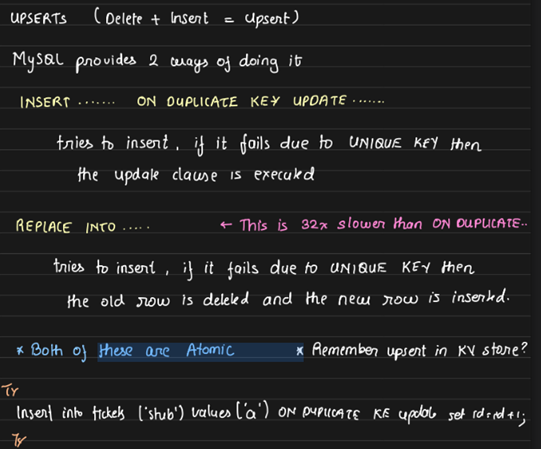 UPSERTs (Delete + Insert = Upsert)
MySQL provides 2 ways of doing it
INSERT ....... ON DUPLICATE KEY UPDATE ......
tries to insert, if it fails due to UNIQUE KEY then
the update clause is executed
REPLACE INTO ..... ← This is 32x slower than ON DUPLICATE..
tries to insert, if it fails due to UNIQUE KEY then
the old row is deleted and the new row is inserted.
* Both of these are Atomic * Remember upsert in KV store?
Tx
Insert into tickets ('stub') values ('a') ON DUPLICATE KE update set id=id+1;
Tx